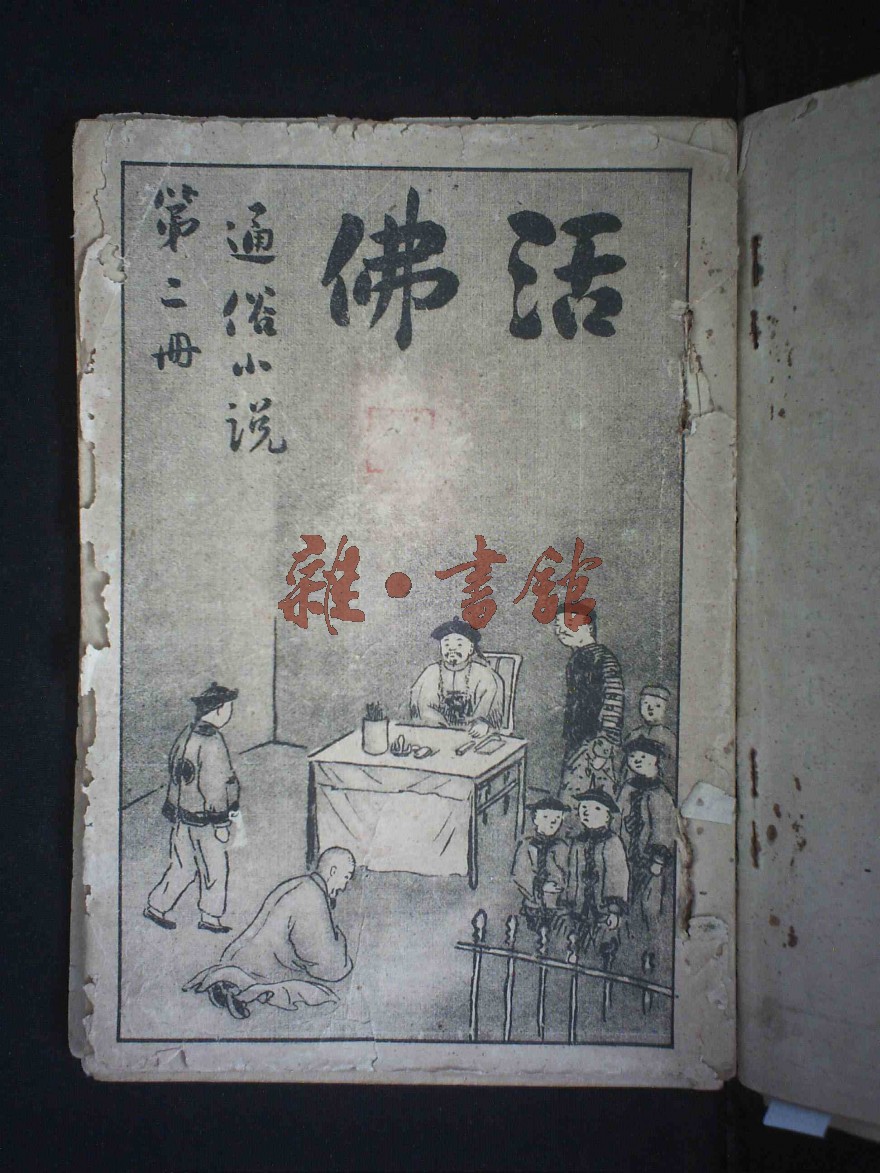 活佛
通俗小说
第二册
雜·書館